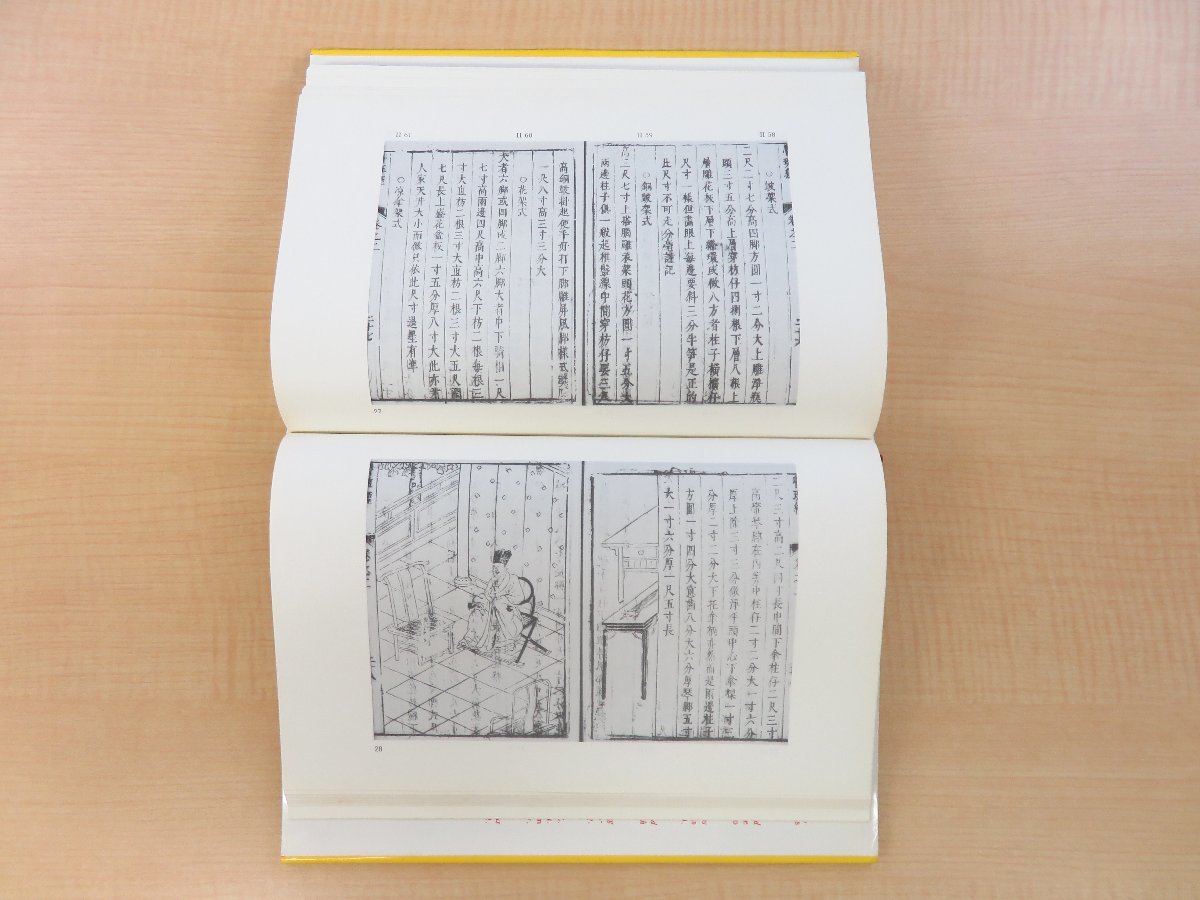 II 61
II 60
II 59
II 58
○皷架式
二尺二寸七分高四脚方圓一寸二分大上雕淨瓶
頭三寸五分高上層穿枋仔四捌根下層八根上
層雕花板下層下絛環或做八方者柱子橫櫓仔
尺寸一樣但畵眼上每邊要斜三分半笋是正的
此尺寸不可走分毫謹記
○銅皷架式
高三尺七寸上搭腦雕衣架頭花方圓一寸五分大
兩邊柱子俱一般起棋盤線中間穿枋仔要三尺
高銅皷掛起便手好打下脚雕屏風脚樣式
一尺八寸高三寸三分大
○花架式
大者六脚或四脚或二脚六脚大者中下騎相一尺
七寸高兩邊四尺高中高六尺下枋二根每根三
寸大直枋二根三寸大五尺
七尺長上盛花盆板一寸五分厚八寸大此亦看
人家天井大小而做只依此尺寸退墨有準
○凉傘架式
27
二尺三寸高二尺四寸長中間下傘柱仔二尺三寸
高帶琴脚在内筭中柱仔二寸二分大一寸六分
厚上除三寸三分做淨平頭中心下傘樑一寸三
分厚二寸二分大下花傘柄亦然而是兩邊柱子
方圓一寸四分大窓齒八分大六分厚琴脚五寸
大一寸六分厚一尺五寸長
28